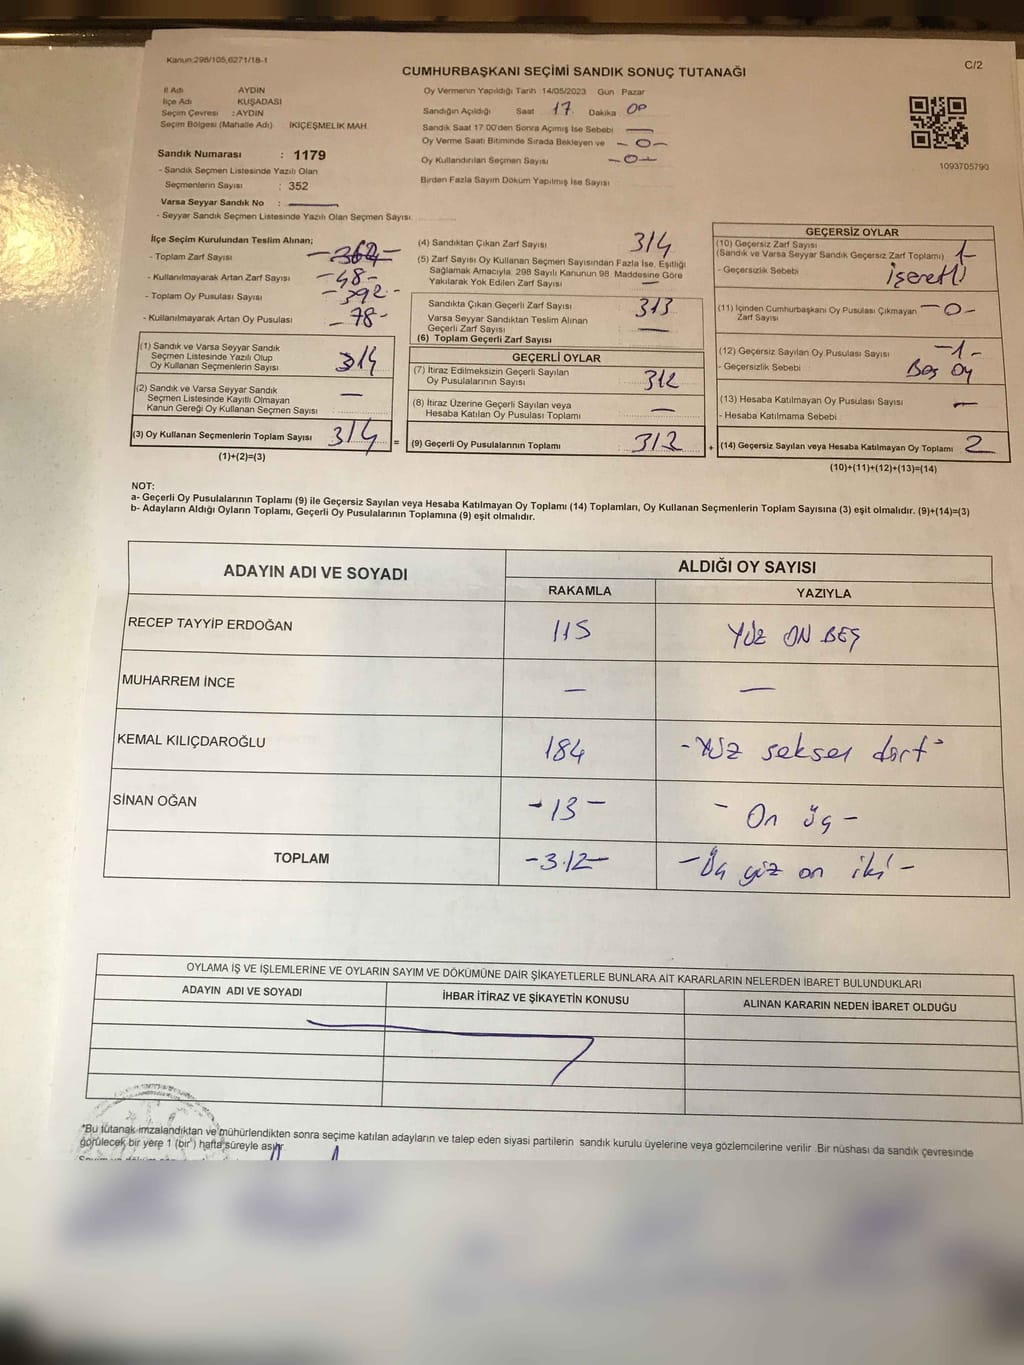 Kanun:298/105,6271/18-1
C/2
CUMHURBAŞKANI SEÇİMİ SANDIK SONUÇ TUTANAĞI
İl Adı AYDIN
İlçe Adı KUŞADASI
Seçim Çevresi : AYDIN
Seçim Bölgesi (Mahalle Adı) İKİÇEŞMELİK MAH.
Sandık Numarası : 1179
- Sandık Seçmen Listesinde Yazılı Olan
Seçmenlerin Sayısı : 352
Varsa Seyyar Sandık No :
- Seyyar Sandık Seçmen Listesinde Yazılı Olan Seçmen Sayısı
Oy Vermenin Yapıldığı Tarih 14/05/2023 Gün Pazar
Sandığın Açıldığı Saat 17 Dakika 00
Sandık Saat 17:00'den Sonra Açımış İse Sebebi —
Oy Verme Saati Bitiminde Sırada Bekleyen ve — 0 —
Oy Kullandırılan Seçmen Sayısı — 0 —
Birden Fazla Sayım Döküm Yapılmış İse Sayısı
1093705790
İlçe Seçim Kurulundan Teslim Alınan;
- Toplam Zarf Sayısı
- Kullanılmayarak Artan Zarf Sayısı -48-
- Toplam Oy Pusulası Sayısı -392-
- Kullanılmayarak Artan Oy Pusulası -78-
(1) Sandık ve Varsa Seyyar Sandık
Seçmen Listesinde Yazılı Olup
Oy Kullanan Seçmenlerin Sayısı 314
(2) Sandık ve Varsa Seyyar Sandık
Seçmen Listesinde Kayıtlı Olmayan
Kanun Gereği Oy Kullanan Seçmen Sayısı —
(3) Oy Kullanan Seçmenlerin Toplam Sayısı 314 =
(1)+(2)=(3)
(4) Sandıktan Çıkan Zarf Sayısı 314
(5) Zarf Sayısı Oy Kullanan Seçmen Sayısından Fazla İse, Eşitliği
Sağlamak Amacıyla, 298 Sayılı Kanunun 98. Maddesine Göre
Yakılarak Yok Edilen Zarf Sayısı —
Sandıkta Çıkan Geçerli Zarf Sayısı 313
Varsa Seyyar Sandıktan Teslim Alınan
Geçerli Zarf Sayısı —
(6) Toplam Geçerli Zarf Sayısı
GEÇERLİ OYLAR
(7) İtiraz Edilmeksizin Geçerli Sayılan
Oy Pusulalarının Sayısı 312
(8) İtiraz Üzerine Geçerli Sayılan veya
Hesaba Katılan Oy Pusulası Toplamı —
(9) Geçerli Oy Pusulalarının Toplamı 312 +
GEÇERSİZ OYLAR
(10) Geçersiz Zarf Sayısı
(Sandık ve Varsa Seyyar Sandık Geçersiz Zarf Toplamı) 1-
- Geçersizlik Sebebi işaretli
(11) İçinden Cumhurbaşkanı Oy Pusulası Çıkmayan — 0 —
Zarf Sayısı
(12) Geçersiz Sayılan Oy Pusulası Sayısı -1-
- Geçersizlik Sebebi Boş oy
(13) Hesaba Katılmayan Oy Pusulası Sayısı —
- Hesaba Katılmama Sebebi
(14) Geçersiz Sayılan veya Hesaba Katılmayan Oy Toplamı 2
(10)+(11)+(12)+(13)=(14)
NOT:
a- Geçerli Oy Pusulalarının Toplamı (9) ile Geçersiz Sayılan veya Hesaba Katılmayan Oy Toplamı (14) Toplamları, Oy Kullanan Seçmenlerin Toplam Sayısına (3) eşit olmalıdır. (9)+(14)=(3)
b- Adayların Aldığı Oyların Toplamı, Geçerli Oy Pusulalarının Toplamına (9) eşit olmalıdır.
ADAYIN ADI VE SOYADI
ALDIĞI OY SAYISI
RAKAMLA YAZIYLA
RECEP TAYYİP ERDOĞAN 115 YÜZ ON BEŞ
MUHARREM İNCE — —
KEMAL KILIÇDAROĞLU 184 - Yüz seksen dört -
SİNAN OĞAN - 13 - - On üç -
TOPLAM -312- - Üç yüz on iki -
OYLAMA İŞ VE İŞLEMLERİNE VE OYLARIN SAYIM VE DÖKÜMÜNE DAİR ŞİKAYETLERLE BUNLARA AİT KARARLARIN NELERDEN İBARET BULUNDUKLARI
ADAYIN ADI VE SOYADI İHBAR İTİRAZ VE ŞİKAYETİN KONUSU ALINAN KARARIN NEDEN İBARET OLDUĞU
*Bu tutanak imzalandıktan ve mühürlendikten sonra seçime katılan adayların ve talep eden siyasi partilerin sandık kurulu üyelerine veya gözlemcilerine verilir .Bir nüshası da sandık çevresinde
görülecek bir yere 1 (bir ) hafta süreyle asılır.